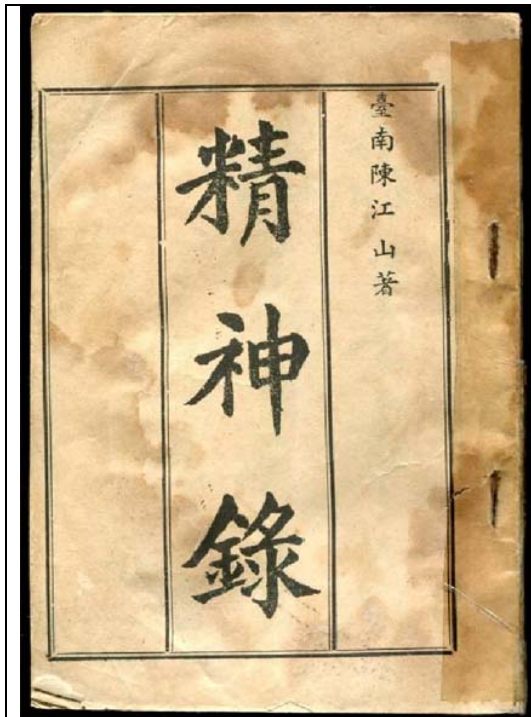 臺南陳江山著
精神錄